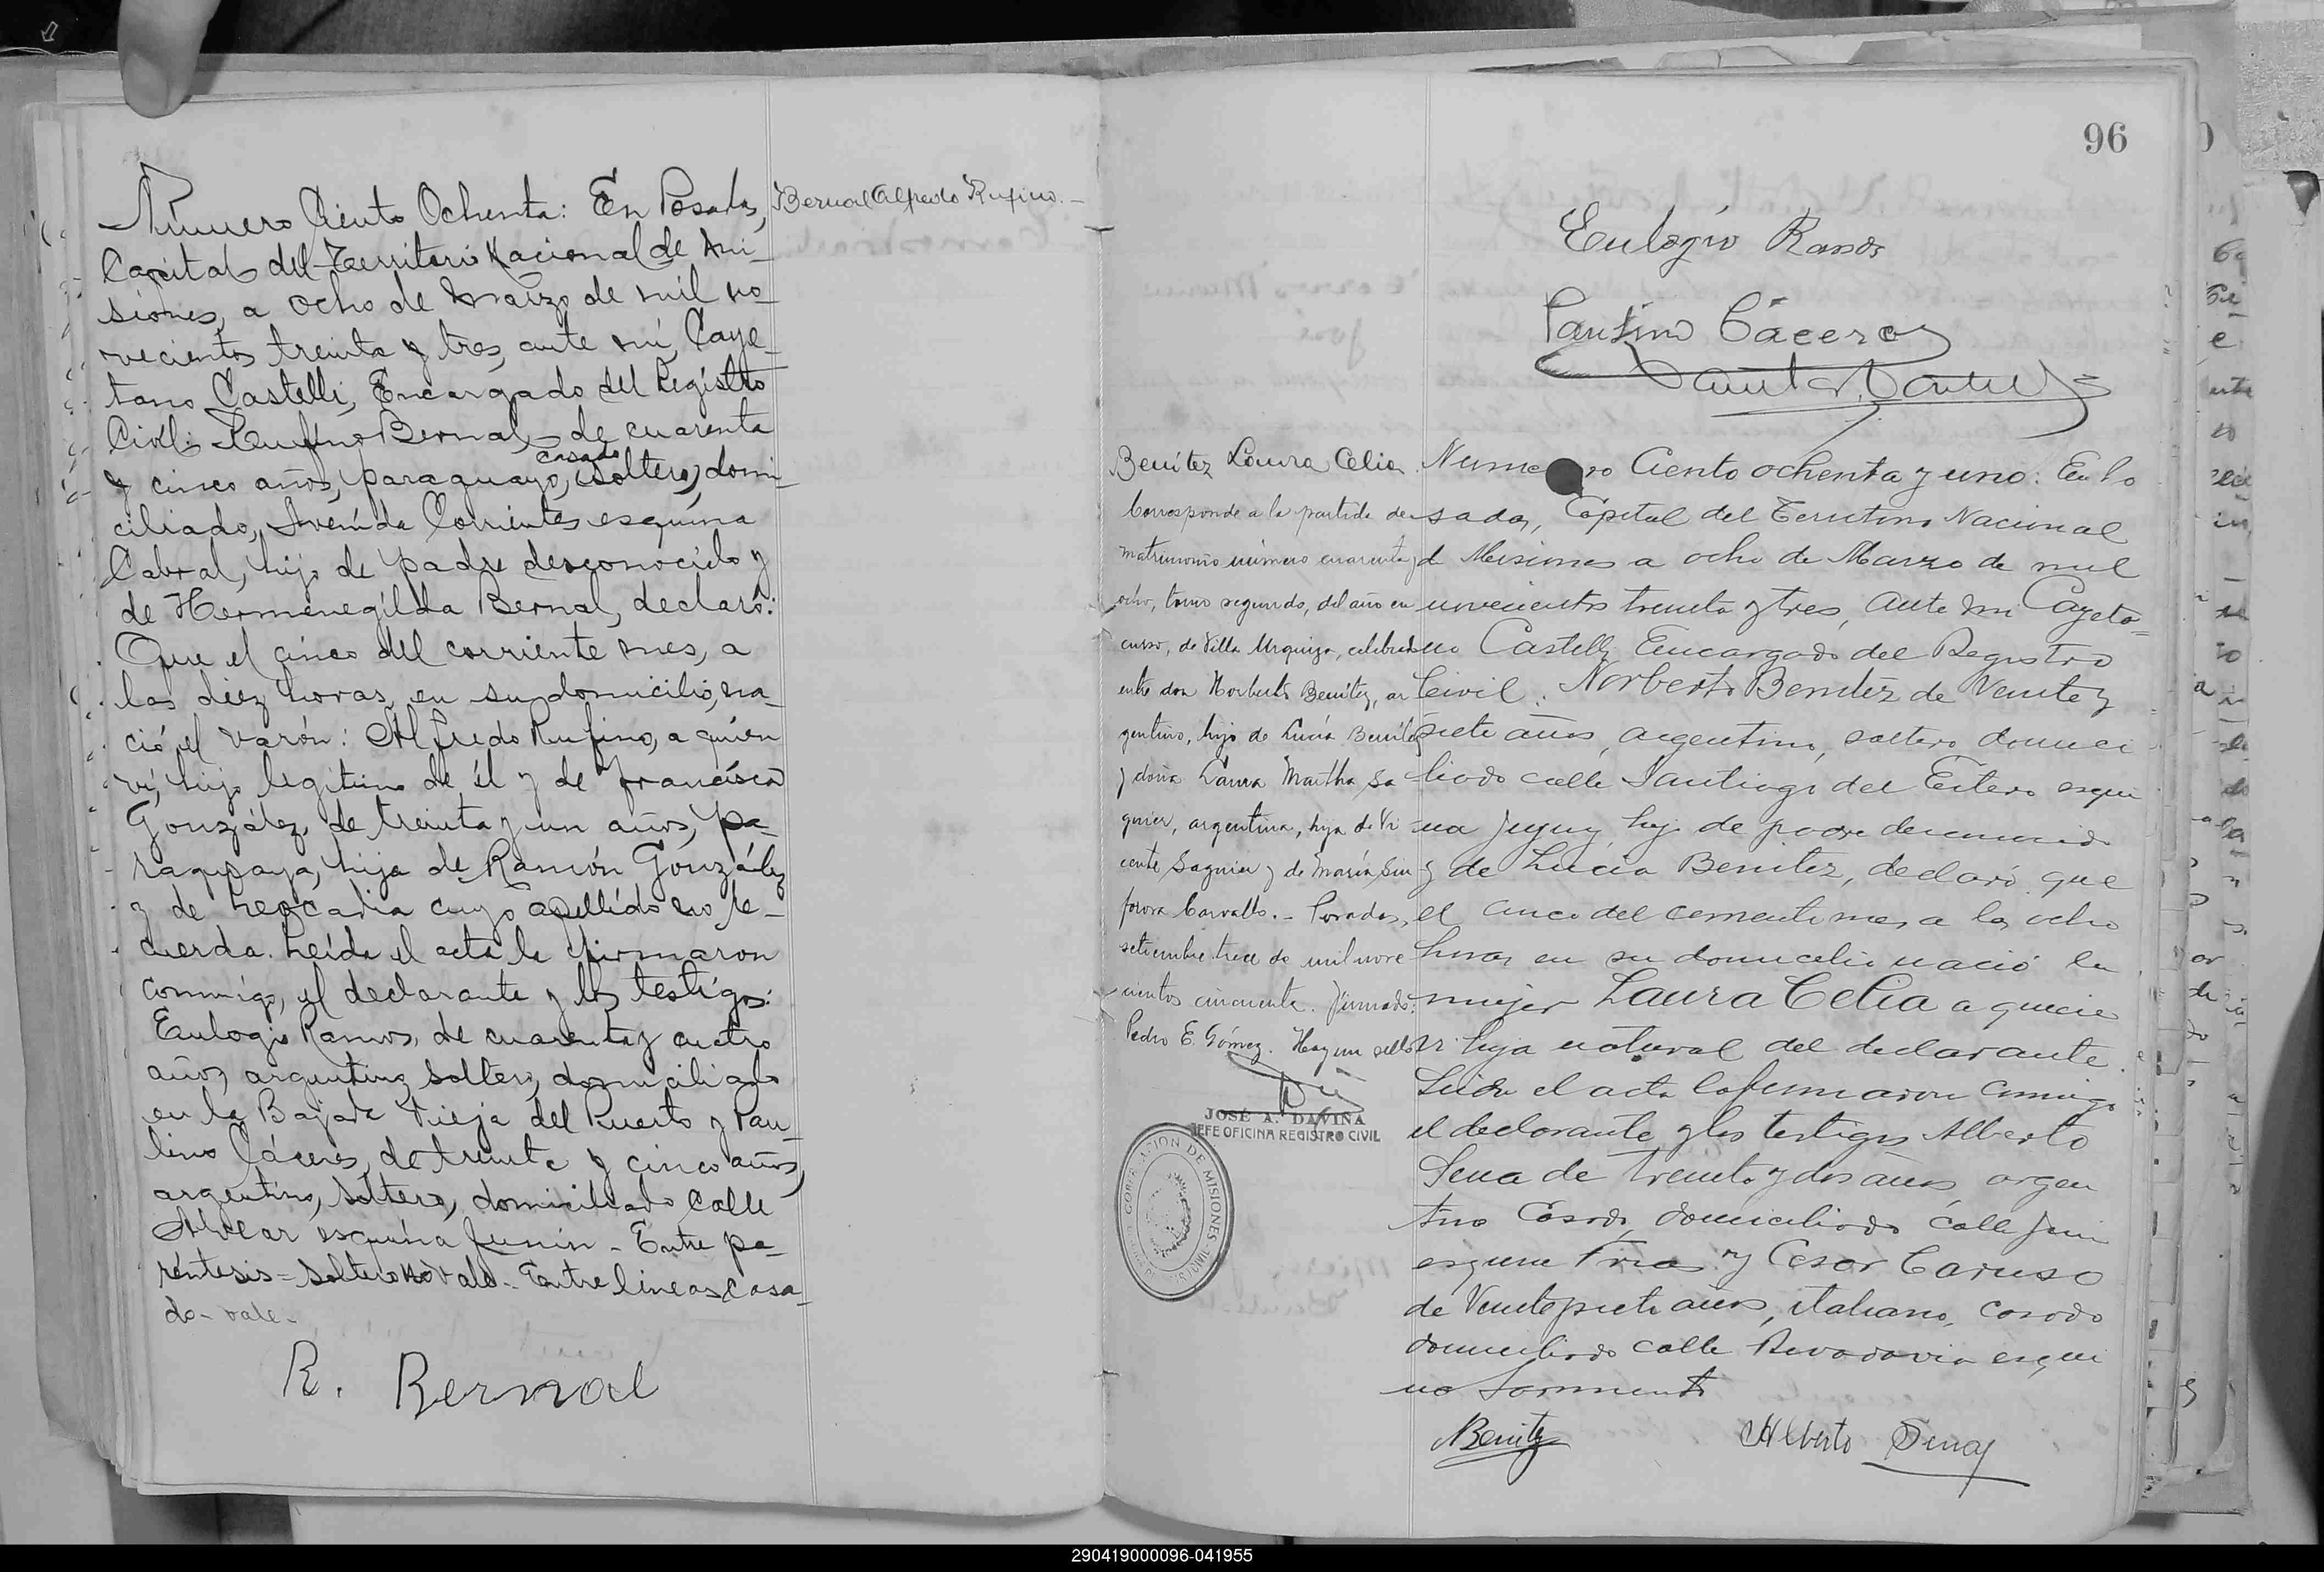 Número Ciento Ochenta: En Posadas,
Capital del Territorio Nacional de Mi-
siones, a ocho de Marzo de mil no-
vecientos treinta y tres, ante mí, Caye-
tano Castelli, Encargado del Registro
Civil: Rufino Bernal, de cuarenta
casado
y cinco años, paraguayo, (soltero), domi-
ciliado, Avenida Corrientes esquina
Cabral, hijo de padre desconocido y
de Hermenegilda Bernal, declaró:
Que el cinco del corriente mes, a
las diez horas, en su domicilio, na-
ció el varón: Alfredo Rufino, a quien
ví, hijo legitimo de él y de Francisca
González, de treinta y un años, pa-
raguaya, hija de Ramón González
y de Leocadia cuyo apellido no re-
cuerda. Leída el acta la firmaron
conmigo, el declarante y los testigos:
Eulogio Ramos, de cuarenta y cuatro
años, argentino, soltero, domiciliado
en la Bajada Vieja del Puerto y Pau-
lino Cáceres, de treinta y cinco años,
argentino, soltero, domiciliado calle
Alvear esquina Junín - Entre pa-
réntesis = soltero no vale. Entre lineas casa-
do - vale -
R. Bernal
Bernal Alfredo Rufino. -
96
Eulogio Ramos
Paulino Cáceres
Benítez Laura Celia
Corresponde a la partida de
matrimonio número cuarenta y
ocho, tomo segundo, del año en
curso, de Villa Urquiza, celebrado
entre don Norberto Benítez, ar
gentino, hijo de Lucía Benítez
y doña Laura Martha Sa
guier, argentina, hija de Vi
cente Saguier y de María Sin
forosa Carvallo. - Posadas,
setiembre trece de mil nove
cientos cincuenta. Firmado:
Pedro E. Gómez. Hay un sello
JOSÉ A. DAVIÑA
JEFE OFICINA REGISTRO CIVIL
GOBERNACION DE MISIONES
Numero Ciento ochenta y uno: En Po
sadas, Capital del Territorio Nacional
de Misiones a ocho de Marzo de mil
novecientos treinta y tres, ante mi Cayeta-
no Castelli Encargado del Registro
Civil: Norberto Benítez de Veinte y
siete años, argentino, soltero domici
liado calle Santiago del Estero esqui
na Jujuy, hijo de padre desconocido
y de Lucía Benítez, declaró que
el cinco del corriente mes, a las ocho
horas en su domicilio nació la
mujer Laura Celia a quien
vi hija natural del declarante.
Leída el acta la firmaron conmigo
el declarante y los testigos Alberto
Sena de treinta y dos años, argen
tino casado, domiciliado calle Junin
esquina Frias y Cesar Caruso
de Veintesiete años, italiano, casado
domiciliado calle Rivadavia esqui
na Sarmiento
NBenitez
Alberto Sena
290419000096-041955